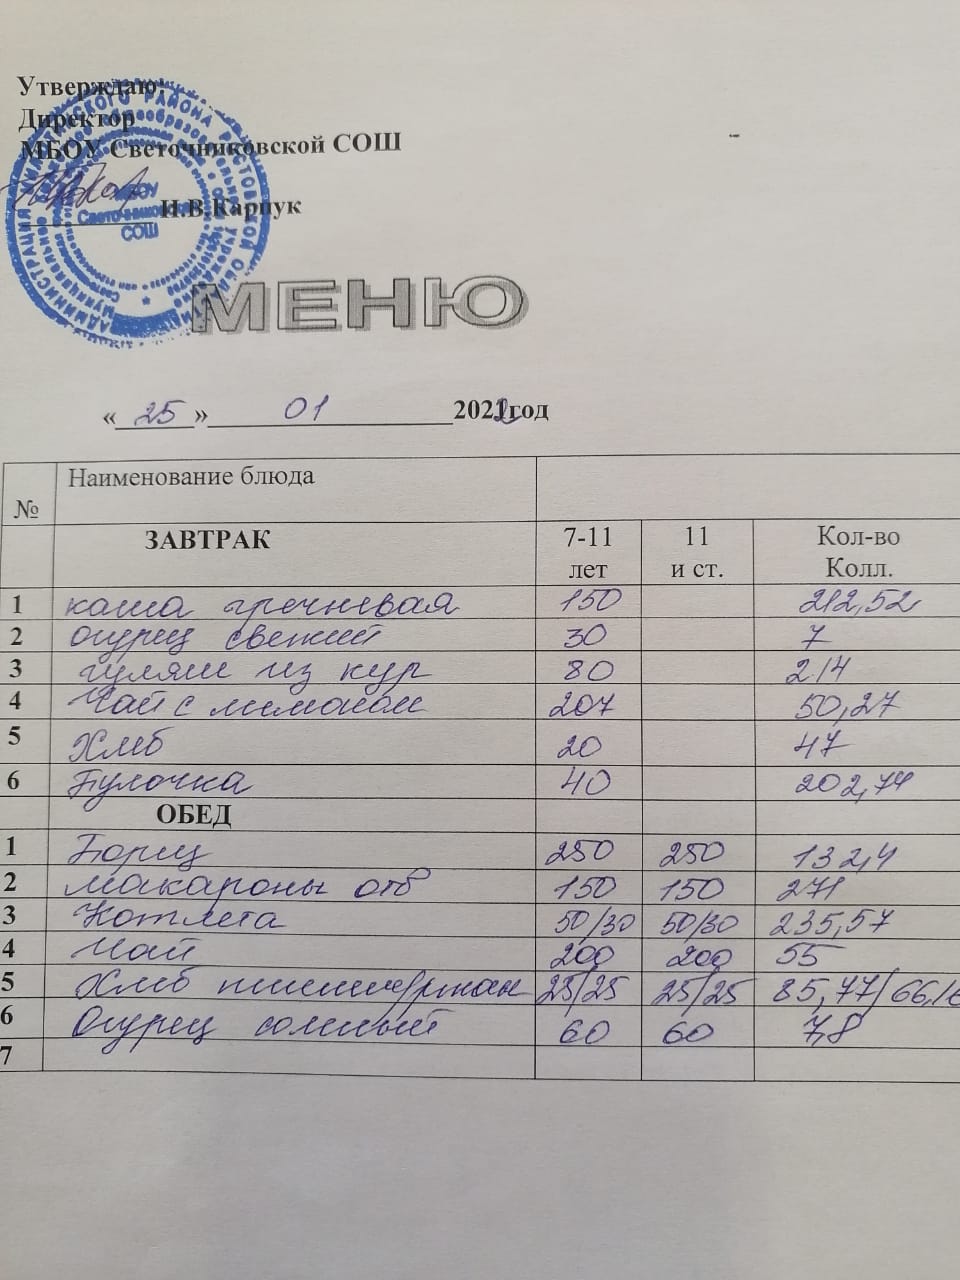 Утверждаю:
Директор
МБОУ Светочниковской СОШ
Н.В.Карпук
МБОУ
Светочниковская
СОШ
МЕНЮ
« 25 » 01 2022год
№ Наименование блюда
ЗАВТРАК 7-11 лет 11 и ст. Кол-во Колл.
1 каша гречневая 150 212,52
2 огурец свежий 30 7
3 гуляш из кур 80 214
4 Чай с лимоном 207 50,27
5 Хлеб 20 47
6 Булочка 40 202,74
ОБЕД
1 Борщ 250 250 132,4
2 макароны отв 150 150 271
3 Котлета 50/30 50/30 235,57
4 Чай 200 200 55
5 Хлеб пшенич/ржан 25/25 25/25 85,77/66,16
6 Огурец соленый 60 60 7,8
7